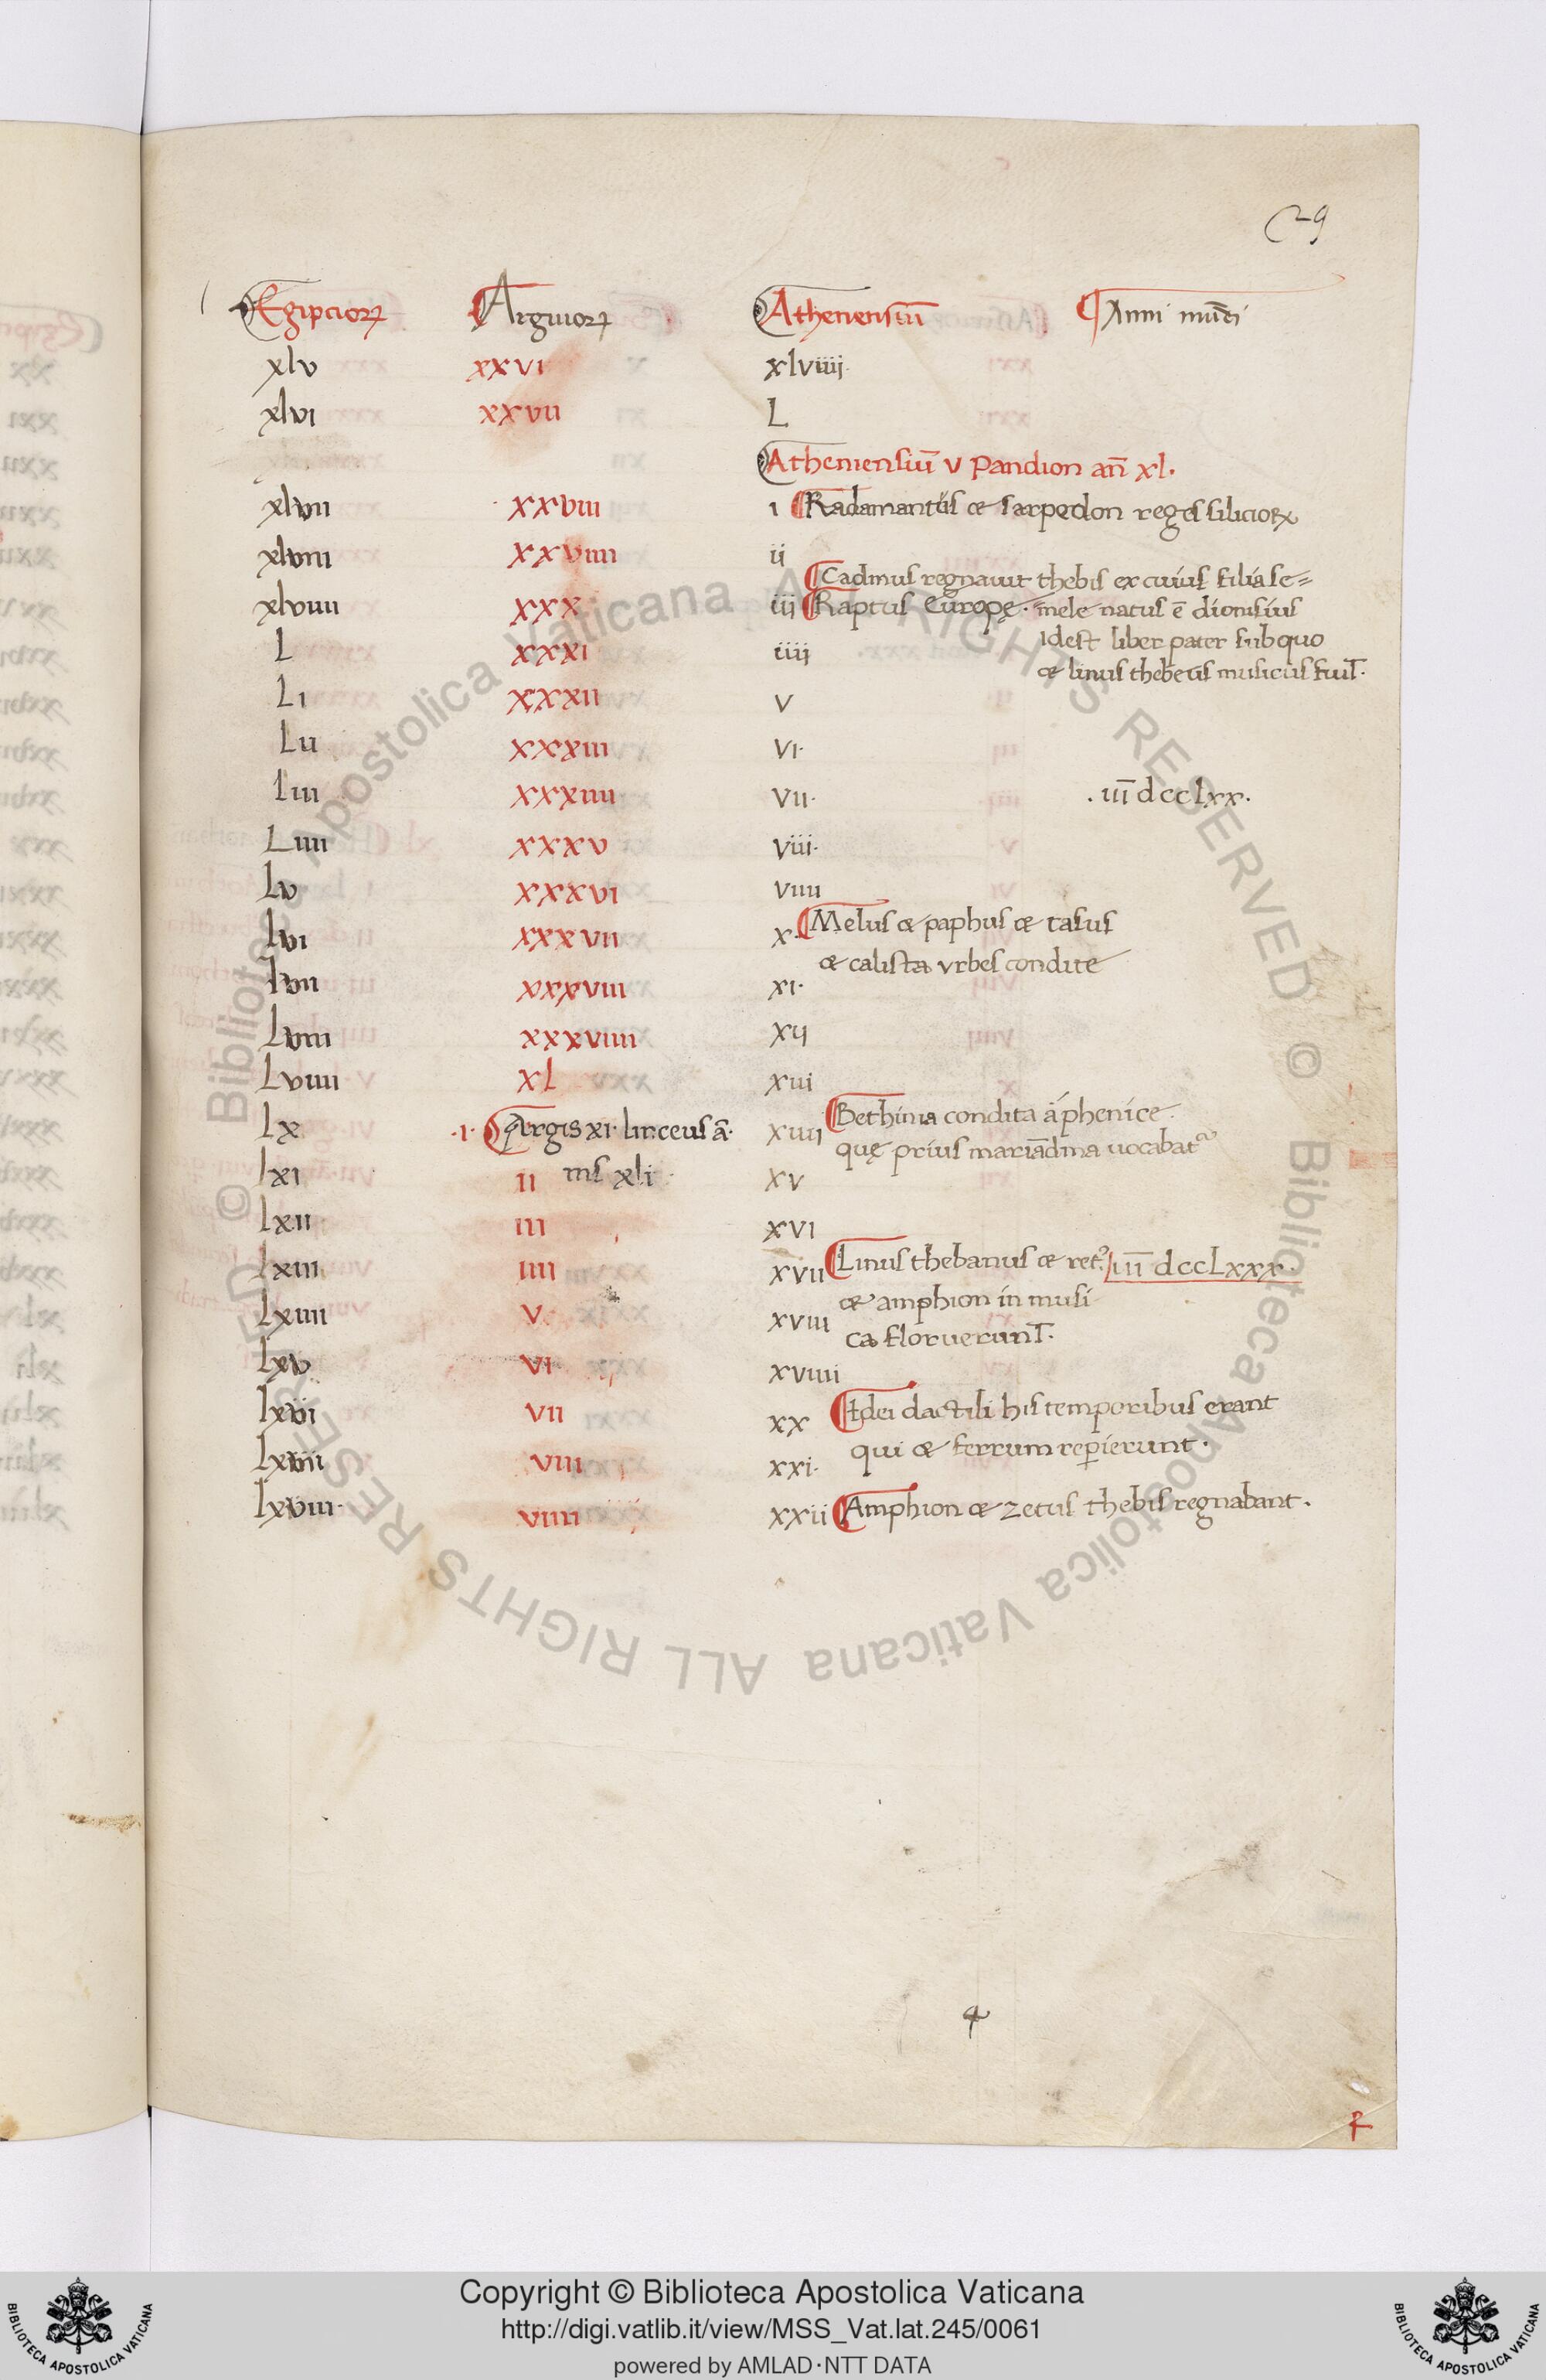 29
Egipcioꝝ Argiuoꝝ Atheniensiū Anni mūdi
xlv xxvi xlviiij
xlvi xxvii L
Atheniensiū v Pandion añ xl.
xlvii xxviii i Radamantus & sarpedon reges siliciorꝝ
xlviii xxviiii ii
Cadmus regnauit thebis ex cuius filia se=
xlviiii xxx iii Raptus Europę. mele natus ē dionisius
Idest liber pater sub quo
L xxxi iiij
& linus thebeus musicus fuit.
Li xxxii v
Lii xxxiii vi.
Liii xxxiiii vii. .iii̅ dcclxx.
Liiii xxxv viii.
Lv xxxvi viiii
Lvi xxxvii x. Melus & paphus & tasus
& calista vrbes condite
Lvii xxxviii xi.
Lviii xxxviiii xij
Lviiii XL xiii
Bethinia condita á phenice.
Lx .i. Argis xi. linceus ā. xiiii
quę prius mariādina uocabat᷑
nis xli
Lxi ii xv
Lxii iii xvi
Lxiii iiii xvii Linus thebanus & ret᷑ iii̅ dccLxxx.
& amphion in musi
Lxiiii v xviii
ca floruerunt̅.
Lxv vi xviiii
Lxvi vii xx Idei dactili his temporibus erant
qui & ferrum rep̲ierunt.
Lxvii viii xxi.
Lxviii. viiii xxii Amphion & zetus thebis regnabant.
© Biblioteca Apostolica Vaticana ALL RIGHTS RESERVED © Biblioteca Apostolica Vaticana ALL RIGHTS RESERVED
Copyright © Biblioteca Apostolica Vaticana
http://digi.vatlib.it/view/MSS_Vat.lat.245/0061
powered by AMLAD·NTT DATA
BIBLIOTECA APOSTOLICA VATICANA
BIBLIOTECA APOSTOLICA VATICANA